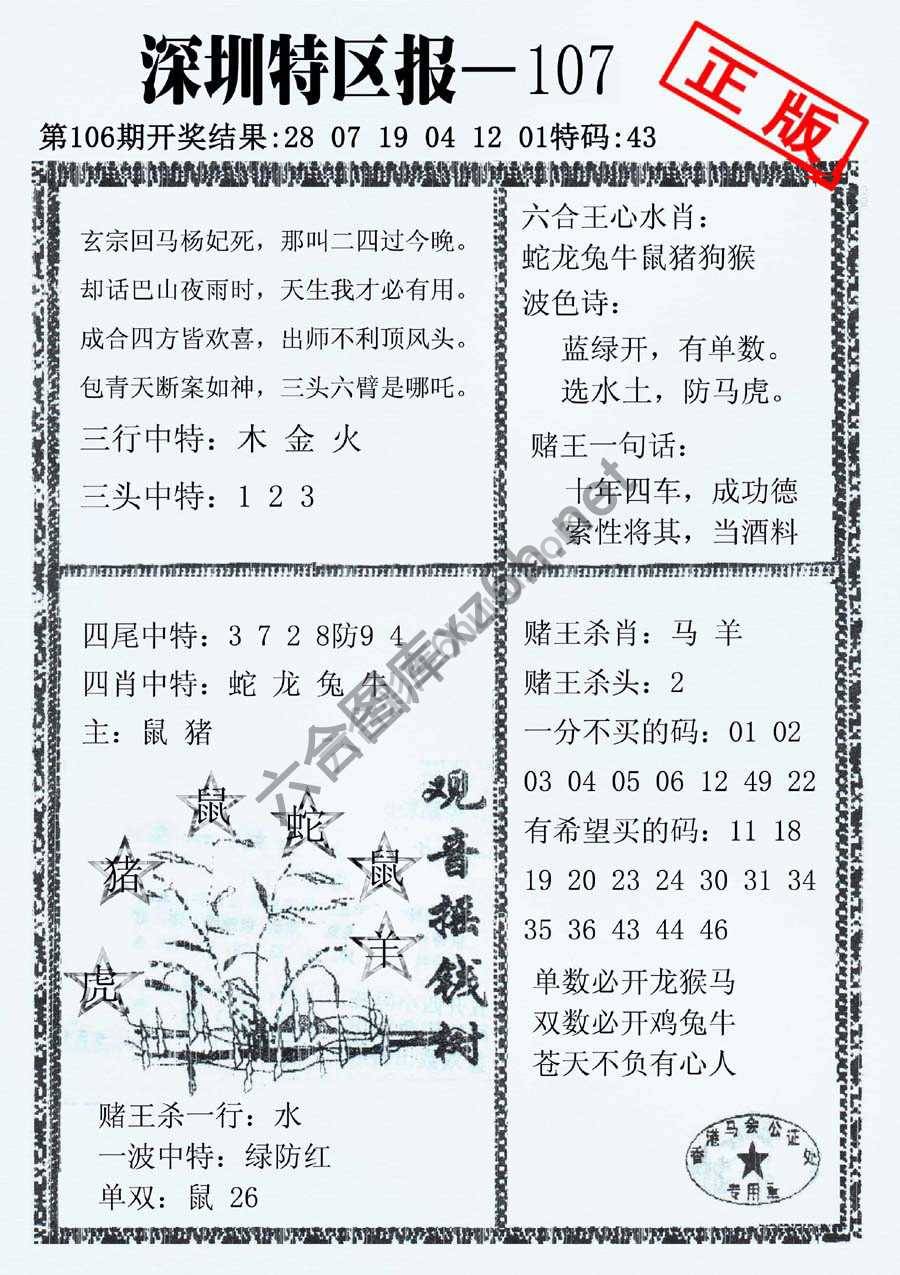 深圳特区报—107
正版
第106期开奖结果:28 07 19 04 12 01特码:43
玄宗回马杨妃死，那叫二四过今晚。
却话巴山夜雨时，天生我才必有用。
成合四方皆欢喜，出师不利顶风头。
包青天断案如神，三头六臂是哪吒。
三行中特：木 金 火
三头中特：1 2 3
六合王心水肖：
蛇龙兔牛鼠猪狗猴
波色诗：
蓝绿开，有单数。
选水土，防马虎。
赌王一句话：
十年四车，成功德
索性将其，当酒料
四尾中特：3 7 2 8防9 4
四肖中特：蛇 龙 兔 牛
主：鼠 猪
鼠
蛇
猪
鼠
羊
虎
观音摇钱树
赌王杀一行：水
一波中特：绿防红
单双：鼠 26
赌王杀肖：马 羊
赌王杀头：2
一分不买的码：01 02
03 04 05 06 12 49 22
有希望买的码：11 18
19 20 23 24 30 31 34
35 36 43 44 46
单数必开龙猴马
双数必开鸡兔牛
苍天不负有心人
香港马会公证处
专用章
六合图库